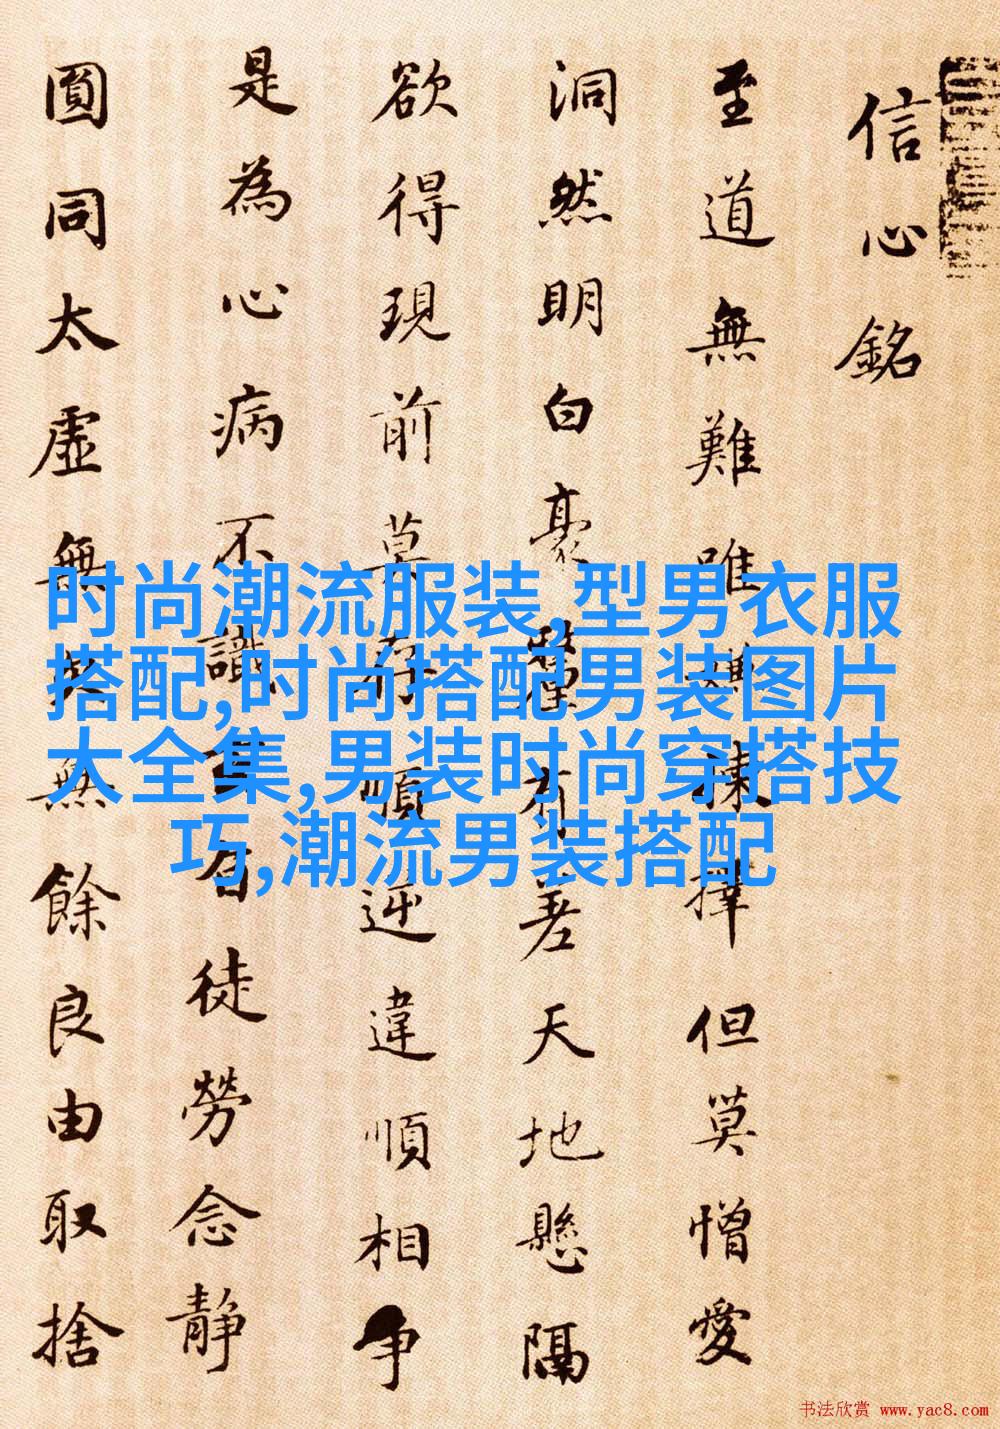 信心銘
至道無難唯嫌揀擇但莫憎愛
洞然明白豪釐有差天地懸隔
欲得現前莫存順逆違順相争
是為心病不識玄旨徒勞念靜
圓同太虛無欠無餘良由取捨
时尚潮流服装,型男衣服
搭配,时尚搭配男装图片
大全集,男装时尚穿搭技
巧,潮流男装搭配
书法欣赏 www.yac8.com